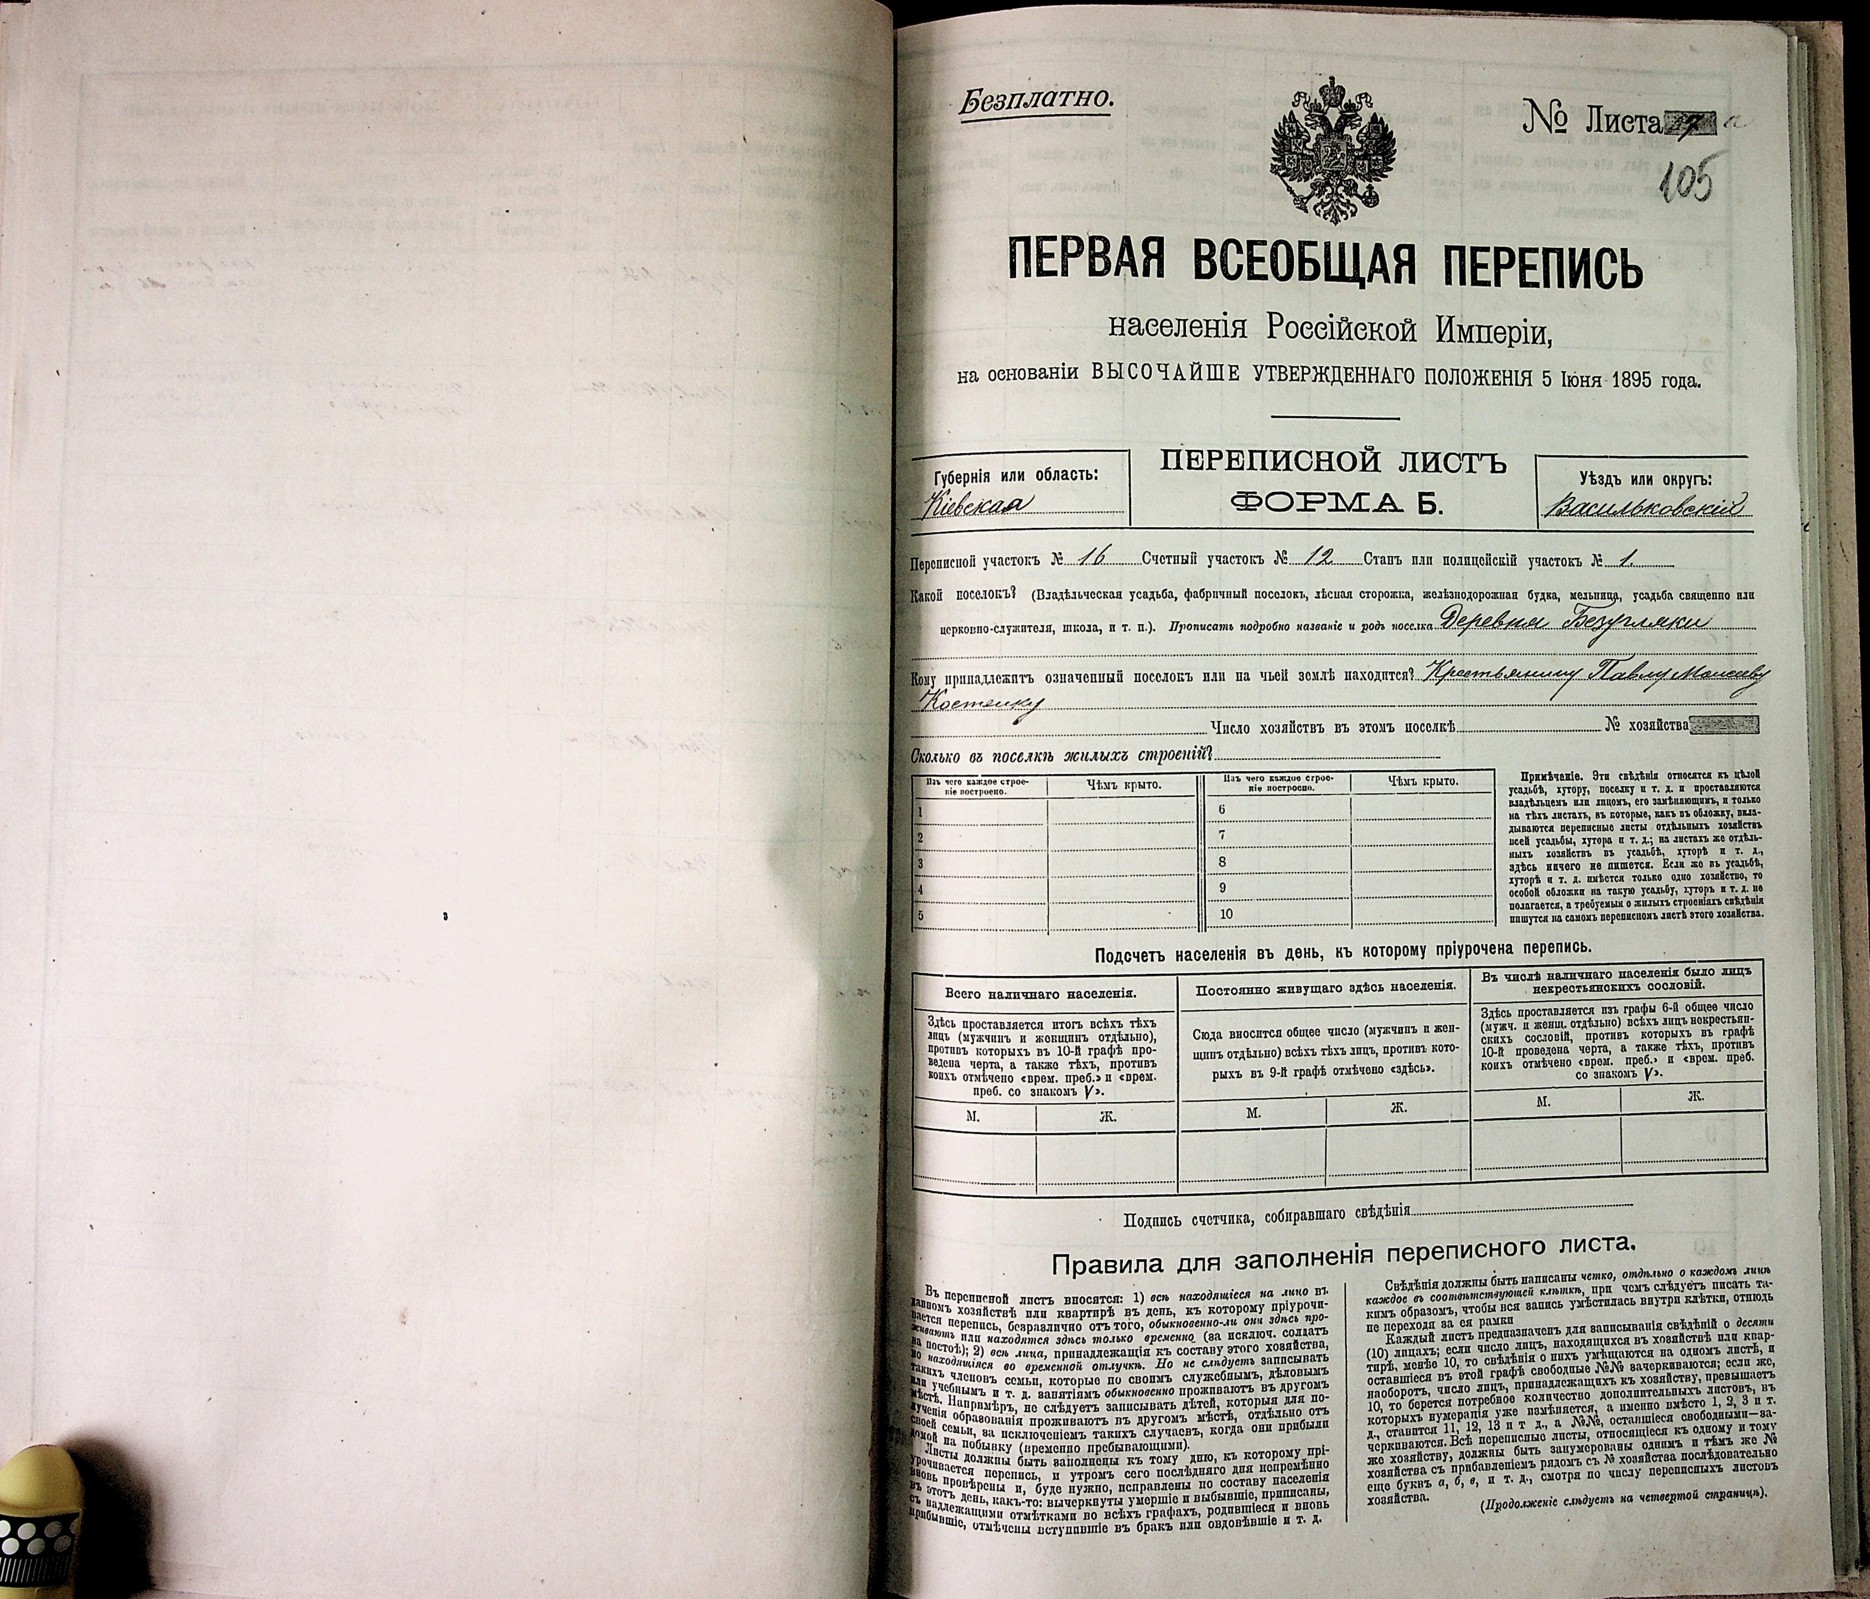 Безплатно.
№ Листа 7 а
105
ПЕРВАЯ ВСЕОБЩАЯ ПЕРЕПИСЬ
населенія Россійской Имперіи,
на основаніи ВЫСОЧАЙШЕ УТВЕРЖДЕННАГО ПОЛОЖЕНІЯ 5 Іюня 1895 года.
ПЕРЕПИСНОЙ ЛИСТЪ
ФОРМА Б.
Губернія или область:
Кіевская
Уѣздъ или округъ:
Васильковскій
Переписной участокъ № 16 Счетный участокъ № 12 Станъ или полицейскій участокъ № 1.
Какой поселокъ? (Владѣльческая усадьба, фабричный поселокъ, лѣсная сторожка, желѣзнодорожная будка, мельница, усадьба священно или
церковно-служителя, школа, и т. п.). Прописать подробно названіе и родъ поселка Деревня Безугляки
Кому принадлежитъ означенный поселокъ или на чьей землѣ находится? Крестьянину Павлу Моисееву
Костенку
Число хозяйствъ въ этомъ поселкѣ № хозяйства
Сколько въ поселкѣ жилыхъ строеній?
Изъ чего каждое строе-
ніе построено.
Чѣмъ крыто.
Изъ чего каждое строе-
ніе построено.
Чѣмъ крыто.
1 6
2 7
3 8
4 9
5 10
Примѣчаніе. Эти свѣдѣнія относятся къ цѣлой
усадьбѣ, хутору, поселку и т. д. и проставляются
владѣльцемъ или лицомъ, его замѣняющимъ, и только
на тѣхъ листахъ, въ которые, какъ въ обложку, вкла-
дываются переписные листы отдѣльныхъ хозяйствъ
всей усадьбы, хутора и т. д.; на листахъ же отдѣль-
ныхъ хозяйствъ въ усадьбѣ, хуторѣ и т. д.,
здѣсь ничего не пишется. Если же въ усадьбѣ,
хуторѣ и т. д. имѣется только одно хозяйство, то
особой обложки на такую усадьбу, хуторъ и т. д. не
полагается, а требуемыя о жилыхъ строеніяхъ свѣдѣнія
пишутся на самомъ переписномъ листѣ этого хозяйства.
Подсчетъ населенія въ день, къ которому пріурочена перепись.
Всего наличнаго населенія.
Здѣсь проставляется итогъ всѣхъ тѣхъ
лицъ (мужчинъ и женщинъ отдѣльно),
противъ которыхъ въ 10-й графѣ про-
ведена черта, а также тѣхъ, противъ
коихъ отмѣчено «врем. преб.» и «врем.
преб. со знакомъ V».
М. Ж.
Постоянно живущаго здѣсь населенія.
Сюда вносится общее число (мужчинъ и жен-
щинъ отдѣльно) всѣхъ тѣхъ лицъ, противъ кото-
рыхъ въ 9-й графѣ отмѣчено «здѣсь».
М. Ж.
Въ числѣ наличнаго населенія было лицъ
некрестьянскихъ сословій.
Здѣсь проставляется изъ графы 6-й общее число
(мужч. и женщ. отдѣльно) всѣхъ лицъ некрестьян-
скихъ сословій, противъ которыхъ въ графѣ
10-й проведена черта, а также тѣхъ, противъ
коихъ отмѣчено «врем. преб.» и «врем. преб.
со знакомъ V».
М. Ж.
Подпись счетчика, собиравшаго свѣдѣнія
Правила для заполненія переписного листа.
Въ переписной листъ вносятся: 1) всѣ находящіеся на лицо въ
данномъ хозяйствѣ или квартирѣ въ день, къ которому пріурочи-
вается перепись, безразлично отъ того, обыкновенно-ли они здѣсь про-
живаютъ или находятся здѣсь только временно (за исключ. солдатъ
на постоѣ); 2) всѣ лица, принадлежащія къ составу этого хозяйства,
но находящіяся во временной отлучкѣ. Но не слѣдуетъ записывать
такихъ членовъ семьи, которые по своимъ служебнымъ, дѣловымъ
или учебнымъ и т. д. занятіямъ обыкновенно проживаютъ въ другомъ
мѣстѣ. Напримѣръ, не слѣдуетъ записывать дѣтей, которыя для по-
лученія образованія проживаютъ въ другомъ мѣстѣ, отдѣльно отъ
своей семьи, за исключеніемъ такихъ случаевъ, когда они прибыли
домой на побывку (временно пребывающими).
Листы должны быть заполнены къ тому дню, къ которому прі-
урочивается перепись, и утромъ сего послѣдняго дня непремѣнно
вновь провѣрены и, буде нужно, исправлены по составу населенія
въ этотъ день, какъ-то: вычеркнуты умершіе и выбывшіе, приписаны,
съ надлежащими отмѣтками во всѣхъ графахъ, родившіеся и вновь
прибывшіе, отмѣчены вступившіе въ бракъ или овдовѣвшіе и т. д.
Свѣдѣнія должны быть написаны четко, отдѣльно о каждомъ лицѣ
каждое въ соотвѣтствующей клѣткѣ, при чемъ слѣдуетъ писать та-
кимъ образомъ, чтобы вся запись умѣстилась внутри клѣтки, отнюдь
не переходя за ея рамки
Каждый листъ предназначенъ для записыванія свѣдѣній о десяти
(10) лицахъ; если число лицъ, находящихся въ хозяйствѣ или квар-
тирѣ, менѣе 10, то свѣдѣнія о нихъ умѣщаются на одномъ листѣ, и
оставшіеся въ этой графѣ свободные №№ зачеркиваются; если же,
наоборотъ, число лицъ, принадлежащихъ къ хозяйству, превышаетъ
10, то берется потребное количество дополнительныхъ листовъ, въ
которыхъ нумерація уже измѣняется, а именно вмѣсто 1, 2, 3 и т.
д., ставится 11, 12, 13 и т д., а №№, оставшіеся свободными—за-
черкиваются. Всѣ переписные листы, относящіеся къ одному и тому
же хозяйству, должны быть занумерованы однимъ и тѣмъ же №
хозяйства съ прибавленіемъ рядомъ съ № хозяйства послѣдовательно
еще буквъ а, б, в, и т. д., смотря по числу переписныхъ листовъ
хозяйства.
(Продолженіе слѣдуетъ на четвертой страницѣ).